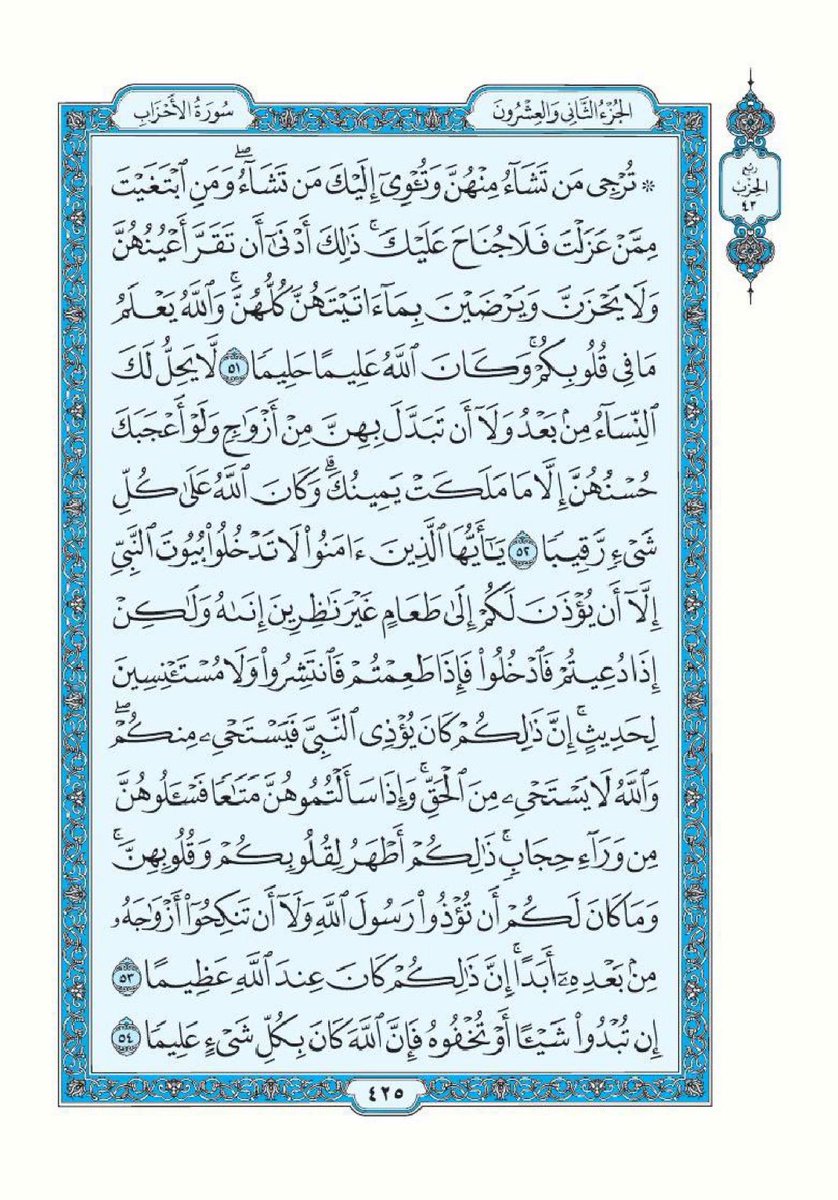 الجُزْءُ الثَّانِي وَالعِشْرُونَ
سُورَةُ الأَحْزَابِ
رُبْع
الحِزْب
٤٣
* تُرْجِي مَن تَشَآءُ مِنْهُنَّ وَتُـْٔوِيٓ إِلَيْكَ مَن تَشَآءُۖ وَمَنِ ٱبْتَغَيْتَ
مِمَّنْ عَزَلْتَ فَلَا جُنَاحَ عَلَيْكَۚ ذَٰلِكَ أَدْنَىٰٓ أَن تَقَرَّ أَعْيُنُهُنَّ
وَلَا يَحْزَنَّ وَيَرْضَيْنَ بِمَآ ءَاتَيْتَهُنَّ كُلُّهُنَّۚ وَٱللَّهُ يَعْلَمُ
مَا فِي قُلُوبِكُمْۚ وَكَانَ ٱللَّهُ عَلِيمًا حَلِيمًا ٥١ لَّا يَحِلُّ لَكَ
ٱلنِّسَآءُ مِنۢ بَعْدُ وَلَآ أَن تَبَدَّلَ بِهِنَّ مِنْ أَزْوَٰجٍ وَلَوْ أَعْجَبَكَ
حُسْنُهُنَّ إِلَّا مَا مَلَكَتْ يَمِينُكَۗ وَكَانَ ٱللَّهُ عَلَىٰ كُلِّ
شَيْءٍ رَّقِيبًا ٥٢ يَٰٓأَيُّهَا ٱلَّذِينَ ءَامَنُوا۟ لَا تَدْخُلُوا۟ بُيُوتَ ٱلنَّبِيِّ
إِلَّآ أَن يُؤْذَنَ لَكُمْ إِلَىٰ طَعَامٍ غَيْرَ نَٰظِرِينَ إِنَىٰهُ وَلَٰكِنْ
إِذَا دُعِيتُمْ فَٱدْخُلُوا۟ فَإِذَا طَعِمْتُمْ فَٱنتَشِرُوا۟ وَلَا مُسْتَـْٔنِسِينَ
لِحَدِيثٍۚ إِنَّ ذَٰلِكُمْ كَانَ يُؤْذِي ٱلنَّبِيَّ فَيَسْتَحْيِۦ مِنكُمْۖ
وَٱللَّهُ لَا يَسْتَحْيِۦ مِنَ ٱلْحَقِّۚ وَإِذَا سَأَلْتُمُوهُنَّ مَتَٰعًا فَسْـَٔلُوهُنَّ
مِن وَرَآءِ حِجَابٍۚ ذَٰلِكُمْ أَطْهَرُ لِقُلُوبِكُمْ وَقُلُوبِهِنَّۚ
وَمَا كَانَ لَكُمْ أَن تُؤْذُوا۟ رَسُولَ ٱللَّهِ وَلَآ أَن تَنكِحُوٓا۟ أَزْوَٰجَهُۥ
مِنۢ بَعْدِهِۦٓ أَبَدًاۚ إِنَّ ذَٰلِكُمْ كَانَ عِندَ ٱللَّهِ عَظِيمًا ٥٣
إِن تُبْدُوا۟ شَيْـًٔا أَوْ تُخْفُوهُ فَإِنَّ ٱللَّهَ كَانَ بِكُلِّ شَيْءٍ عَلِيمًا ٥٤
٤٢٥